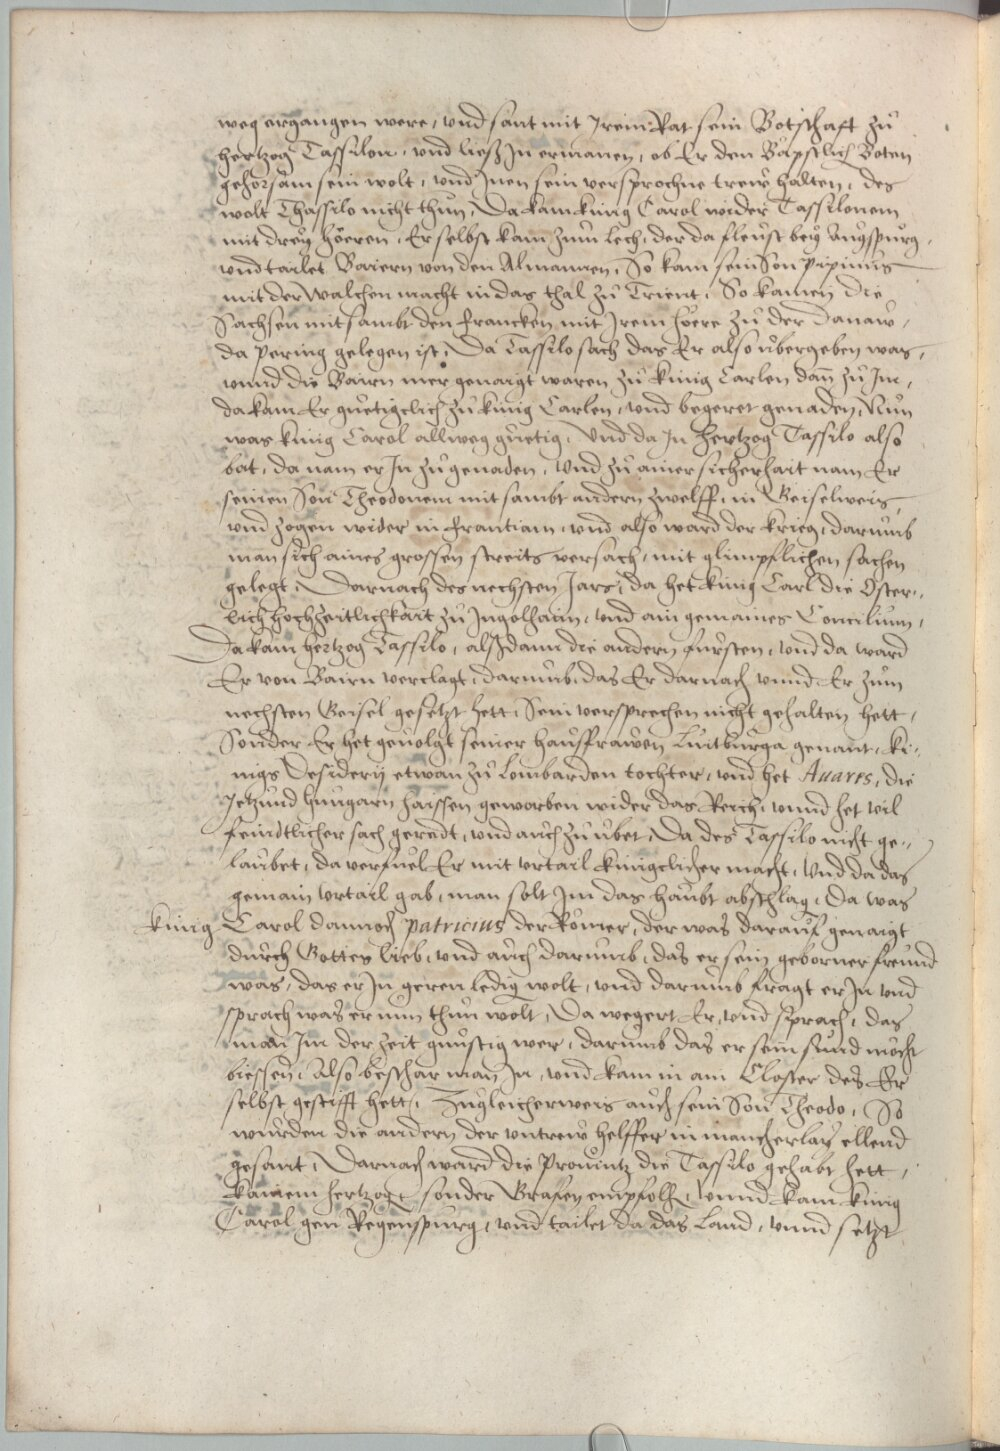 weg ergangen were, vnd sant mit Irem Rat sein Botschafft zu
hertzog Tassilon, vnd ließ In ermanen, ob Er den Bäpstlich Boten
gehorsam sein wolt, vnd Inen sein versprochne trew halten, des
wolt Thassilo nicht thun, Da kam künig Carol wider Tassilonem
mit dreÿ höeren, Er selbst kam zum lech, der da fleust beÿ Augspurg,
vnd tailet Baiern von den Almannen, So kam sein Son Pipinus
mit der Walchen macht in das thal zu Trient, So kamen die
Sachsen mitsambt den francken mit Irem höere zu der Donaw,
da Pering gelegen ist, Da Tassilo sach das Er also übergeben was,
vnnd die Bairn mer genaigt waren zu künig Carlen dann zu Im,
da kam Er güetigclich zu künig Carlen, vnd begeret genaden, Nun
was künig Carol allweg güetig, Vnd da In hertzog Tassilo also
bat, da nam er In zu genaden, Vnd zu ainer sicherhait nam Er
seinen Son Theodonem mitsambt andern zwelff, in Geiselweis,
vnd zogen wider in frantiam, vnd also ward der krieg, darumb
man sich aines grossen streits versach, mit glimpflichen sachen
gelegt, Darnach des nechsten Jars, da het künig Carl die Öster-
lich hochzeitlichkait zu Ingolhaim, vnd ain gemaines Concilium,
Da kam hertzog Tassilo, alß dann die andern fürsten, vnd da ward
Er von Bairn verclagt, darumb, das Er darnach vnnd Er zum
nechsten Geisel gesetzt hett, Sein versprechen nicht gehalten hett,
Sonder Er het geuolgt seiner hausfrawen Luitburga genant, kü-
nigs Desiderÿ etwan zu Lombarden tochter, vnd het Auares, die
Jetzund hungarn haissen geworben wider das Reich, vnnd het vil
feindtlicher sach geredt, vnd auch zu übet, Da des Tassilo nicht ge-
laubet, da verfuel Er mit vrtail künigclicher macht, Vnd da das
gemain vrtail gab, man solt Im das haubt abschlag, Da was
künig Carol dannoch Patricius der Römer, der was darauf genaigt
durch Gottes lieb, vnd auch darumb, das er sein geborner freund
was, das er In geren ledig wolt, vnd darumb fragt er In vnd
sprach was er nun thun wolt, Da wegert Er, vnd sprach, das
man Im der zeit günstig wer, darumb das er sein sünd möcht
biessen, Also beschar man In, vnd kam in ain Closter des Er
selbst gestifft hett, Zugleicherweis auch sein Son Theodo, So
wurden die andern der vntrew helffer in mancherlaÿ ellend
gesant, Darnach ward die Prouintz die Tassilo gehabt hett,
kainem hertzogt sonder Grafen empfolh, vnnd kam künig
Carol gen Regenspurg, vnd tailet da das Land, vnnd setzt